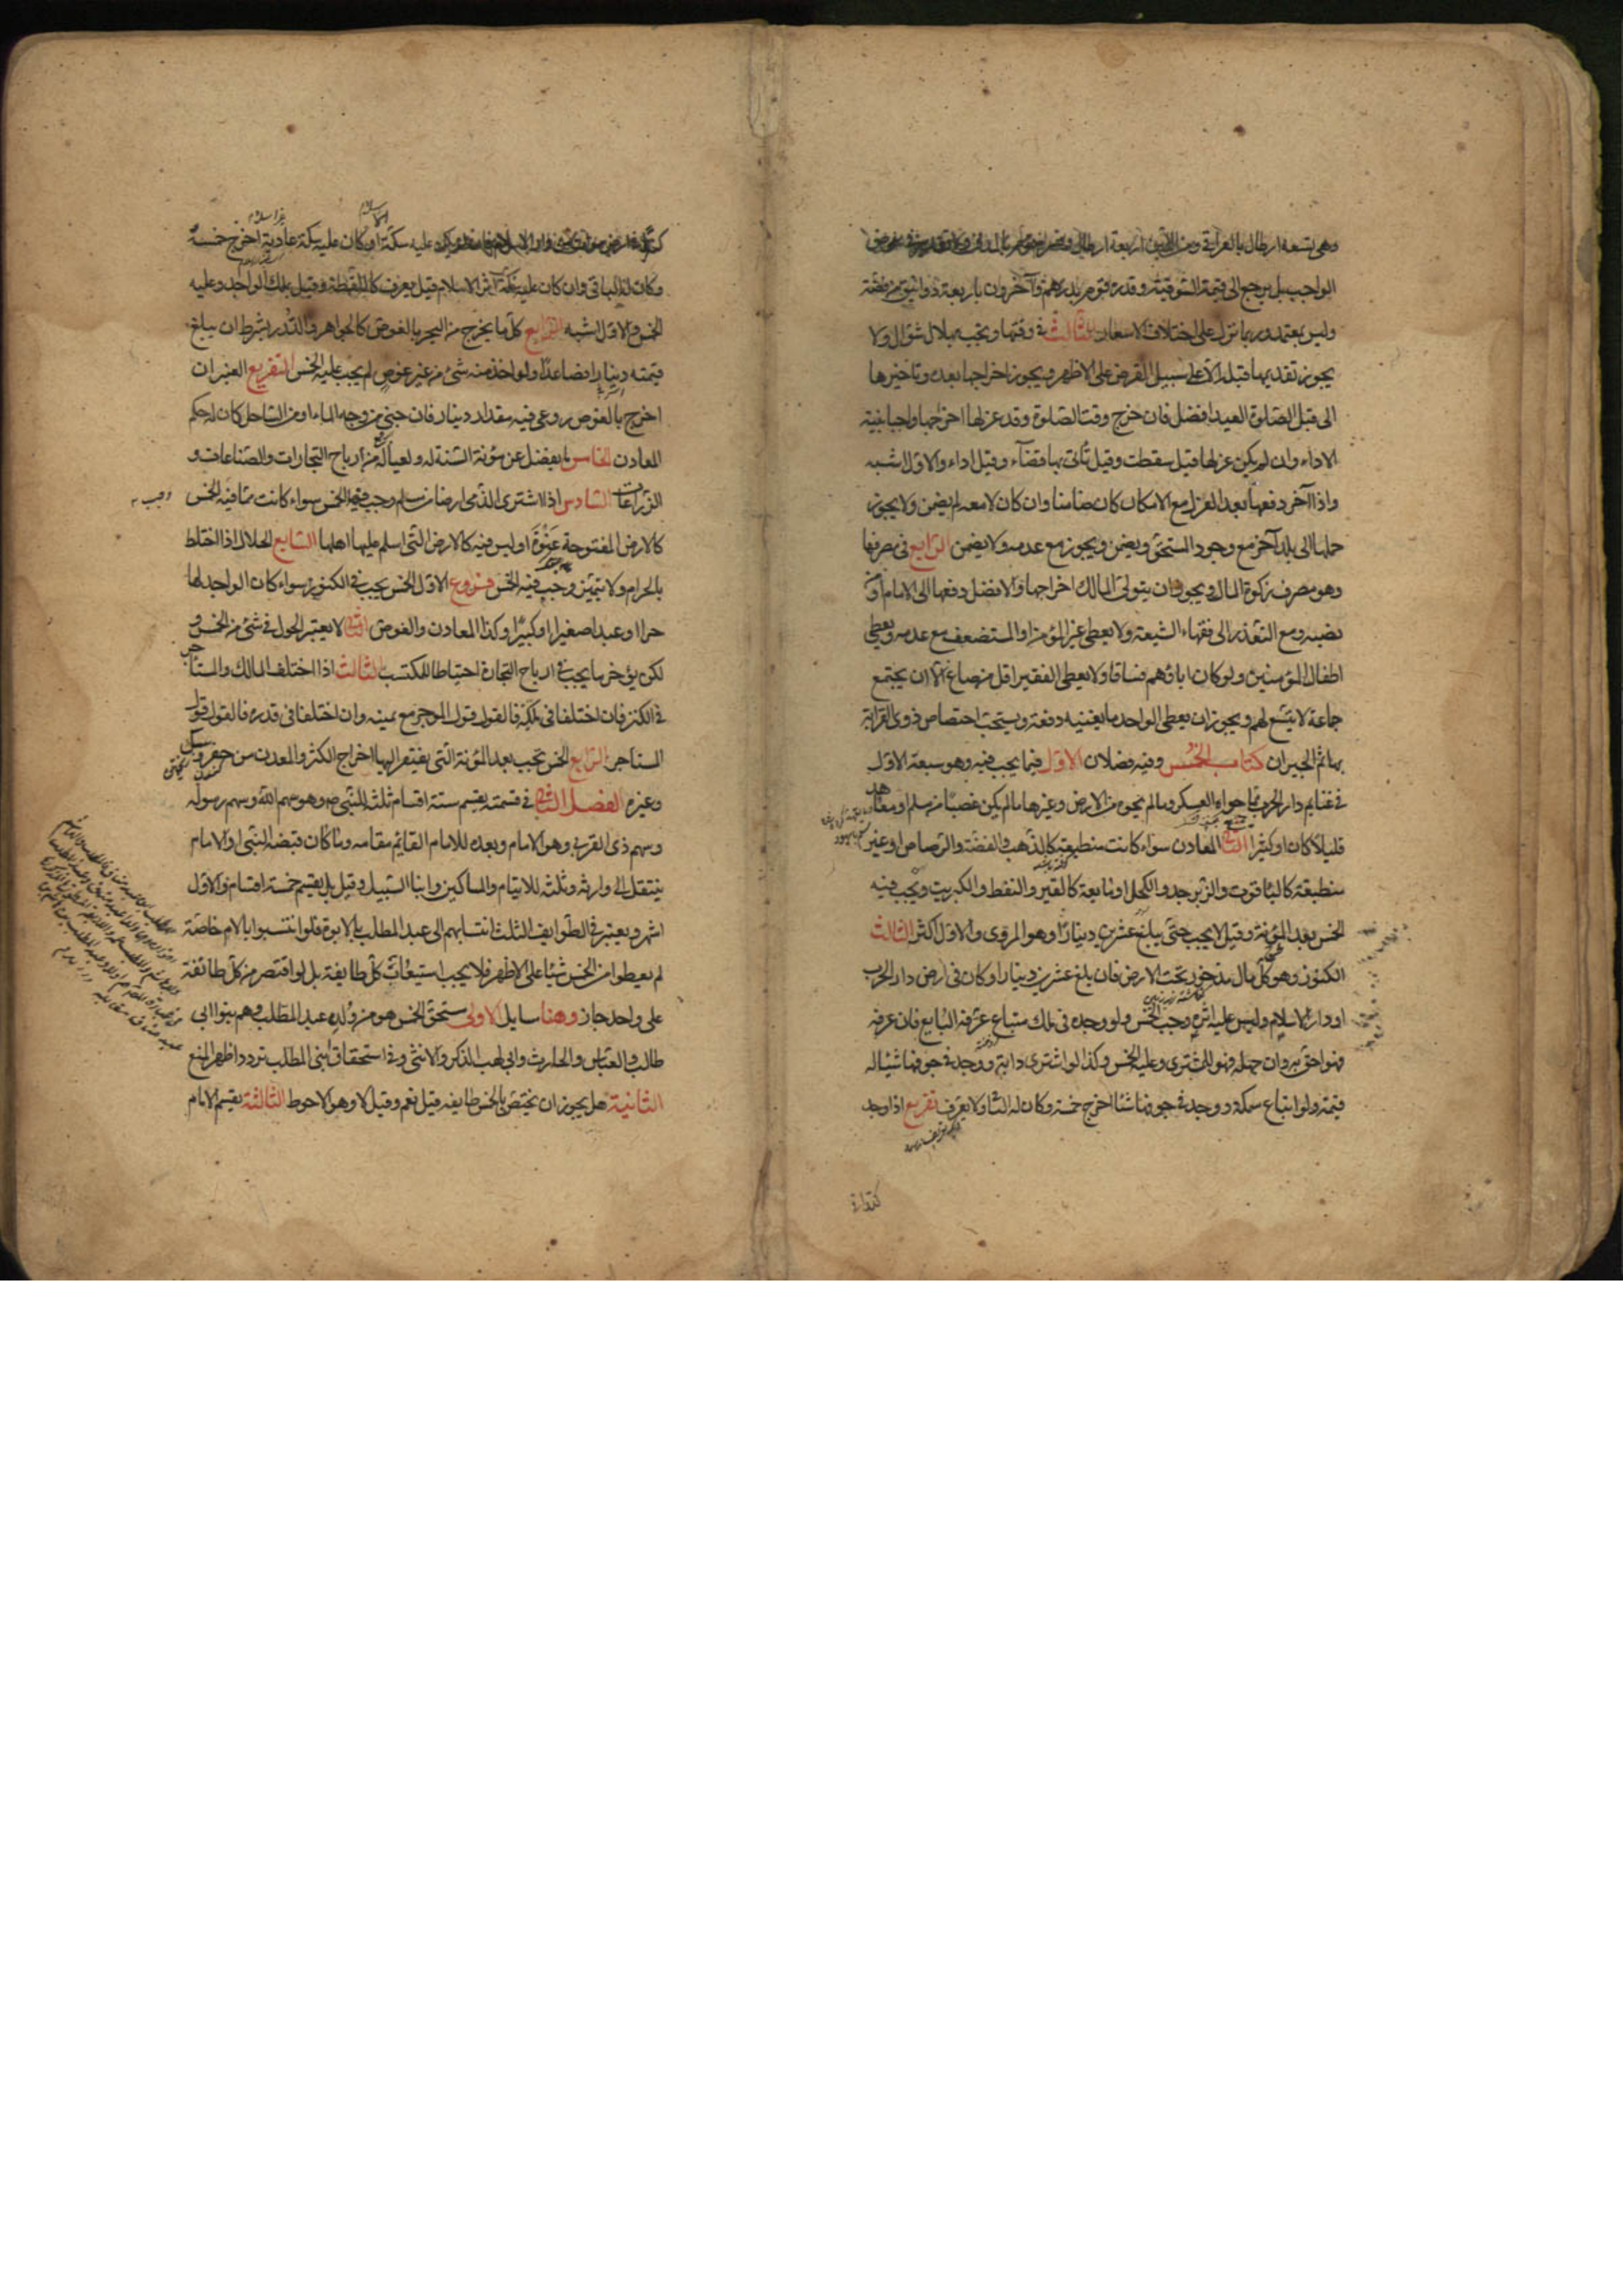 وهي تسعة ارطال بالعراقي ومن اللبن اربعة ارطال
الواجب بل يرجع الى قيمة السوقية وقدره قوم بدرهم وآخرون باربعة دوانيق من فضة
وليس بمعتمد وربما نزل على اختلاف الاسعار الثالث في وقتها وتجب بهلال شوال ولا
يجوز تقديمها قبله الا على سبيل القرض على الاظهر ويجوز اخراجها بعده وتاخيرها
الى قبل الصلوة العيد افضل فان خرج وقت الصلوة وقد عزلها اخرجها واجبا بنية
الاداء وان لم يكن عزلها قيل سقطت وقيل تأتى بها قضآء وقيل اداء والاول اشبه
واذا آخر دفعها بعد العزل مع الامكان كان ضامنا وان كان لا معه لم يضمن ولا يجوز
حملها الى بلد آخر مع وجود المستحق ويضمن ويجوز مع عدمه ولا يضمن الرابع في مصرفها
وهو مصرف زكوة المال ويجوز ان يتولى المالك اخراجها والافضل دفعها الى الامام او من
نصبه ومع التعذر الى فقهاء الشيعة ولا يعطى غير المؤمن او المستضعف مع عدمه ويعطى
اطفال المؤمنين ولو كان اباؤهم فساقا ولا يعطى الفقير اقل من صاع الا ان يجتمع
جماعة لا يتسع لهم ويجوز ان يعطى الواحد ما يغنيه دفعة ويستحب اختصاص ذوى القرابة
بها ثم الجيران كتاب الخمس وفيه فصلان الاول فيما يجب فيه وهو سبعة الاول
في غنايم دار الحرب مما حواه العسكر وما لم يحوه من الارض وغيرها ما لم يكن غصبا من مسلم او معاهد
قليلا كان او كثيرا الثاني المعادن سواء كانت منطبعة كالذهب والفضة والرصاص او غير
منطبعة كالياقوت والزبرجد والكحل او مايعة كالقير والنفط والكبريت ويجب فيه
الخمس بعد المؤنة وقيل لا يجب حتى يبلغ عشرين دينارا وهو المروى والاول اكثر الثالث
الكنوز وهو كل مال مذخور تحت الارض فان بلغ عشرين دينارا وكان في ارض دار الحرب
او دار الاسلام وليس عليه اثره وجب الخمس ولو وجده في ملك مبتاع عرفه البايع فان عرفه
فهو احق به وان جهله فهو للمشترى وعليه الخمس وكذا لو اشترى دابة ووجد في جوفها شيئا له
قيمة ولو ابتاع سمكة ووجد في جوفها شئا اخرج خمسه وكان له الباقى ولا يعرف تفريع اذا وجد
عليه سكة او كان عليه سكة عادية اخرج خمسه
وكان له الباقى وان كان عليه سكة اثر الاسلام قيل يعرف كاللقطة وقيل يملك الواجد وعليه
الخمس والاول اشبه الرابع كل ما يخرج من البحر بالغوص كالجواهر والدرر بشرط ان يبلغ
قيمته دينارا فصاعدا ولو اخذ منه شئ من غير غوص لم يجب عليه الخمس التفريع العنبر ان
اخرج بالغوص روعى فيه مقدار دينار فان جنى من وجه الماء او من الساحل كان له حكم
المعادن الخامس ما يفضل عن مؤنة السنة له ولعياله من ارباح التجارات والصناعات و
الزراعات السادس اذا اشترى الذمى ارضا من مسلم وجب فيها الخمس سواء كانت مما فيه الخمس
كالارض المفتوحة عنوة او ليس فيه كالارض التى اسلم عليها اهلها السابع الحلال اذا اختلط
بالحرام ولا يتميز وجب فيه الخمس فروع الاول الخمس يجب في الكنوز سواء كان الواجد لها
حرا او عبدا صغيرا او كبيرا وكذا المعادن والغوص الثاني لا يعتبر الحول في شئ من الخمس و
لكن يؤخر ما يجب في ارباح التجارة احتياطا للمكتسب الثالث اذا اختلف المالك والمستاجر
في الكنز فان اختلفا في ملكه فالقول قول الموجر مع يمينه وان اختلفا في قدره فالقول قول
المستأجر الرابع الخمس يجب بعد المؤنة التى يفتقر اليها اخراج الكنز والمعدن من حفر وسبك
وغيره الفصل الثاني في قسمته يقسم ستة اقسام ثلثة للنبي ص وهو سهم الله وسهم رسوله
وسهم ذى القربى وهو الامام وبعده للامام القايم مقامه وما كان قبضه النبي او الامام
ينتقل الى وارثه وثلثة للايتام والمساكين وابناء السبيل وقيل بل يقسم خمسة اقسام والاول
اشهر ويعتبر في الطوايف الثلث انتسابهم الى عبد المطلب بالابوة فلو انتسبوا بالام خاصة
لم يعطوا من الخمس شيئا على الاظهر فلا يجب استيعاب كل طايفة بل لو اقتصر من كل طائفة
على واحد جاز وهنا مسايل الاولى مستحق الخمس هو من ولده عبد المطلب وهم بنوا ابى
طالب والعباس والحارث وابى لهب الذكر والانثى وفي استحقاق بنى المطلب تردد اظهر المنع
الثانية هل يجوز ان يختص بالخمس طايفه قيل نعم وقيل لا وهو الاحوط الثالثة يقسم الامام